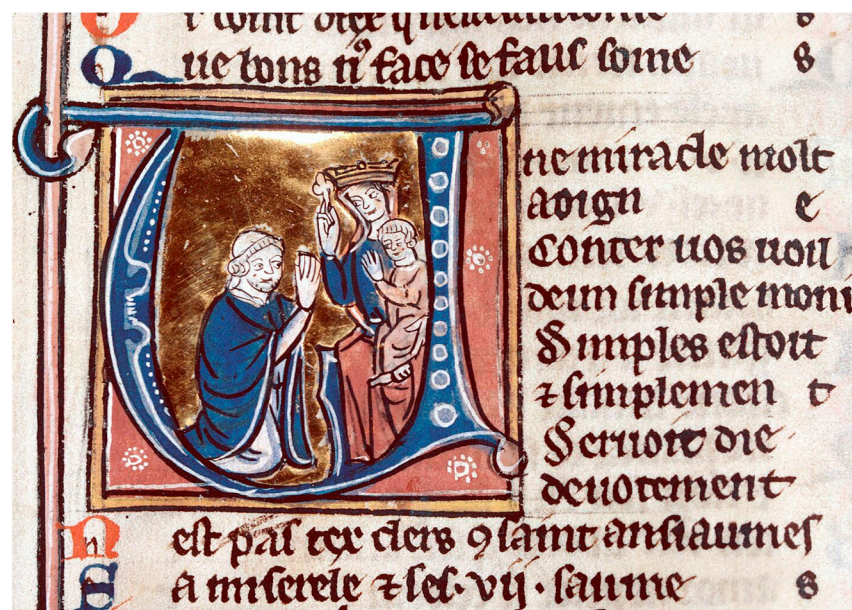 Que bons n'9 face se fauc some s
Une miracle molt
aoign e
Conter uos uoil
deun simple moni
Simples estoit
⁊ simplemen t
Seruoit die
deuotement
Nest pas tex clers ꝯ saint ansiaumes
Sa miserele ⁊ ses · vij · saume s